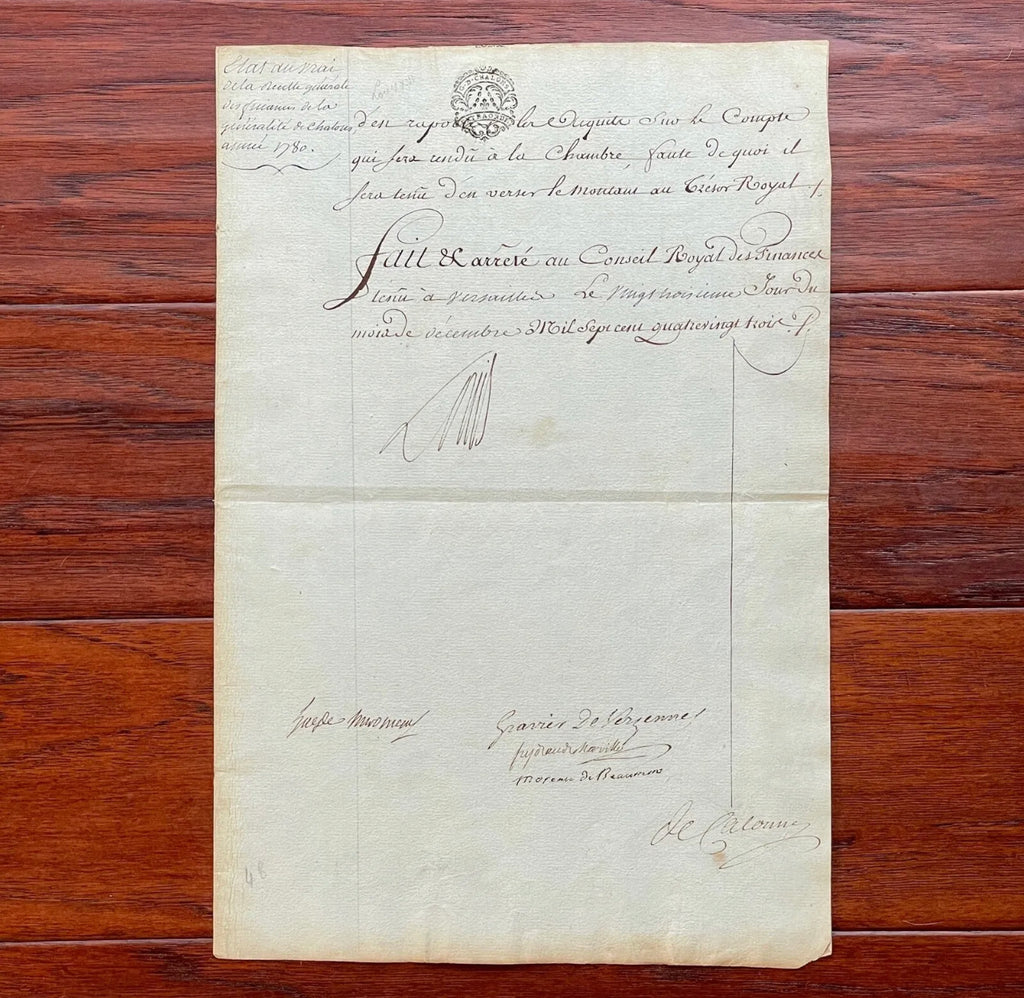 Etat au vrai
de la Recette generale
des finances de la
généralité de Chalons
année 1780.
G. D. CHALONS
d'en raporter les Acquits Sur le Compte
qui Sera rendû à la Chambre, faute de quoi il
Sera tenû d'en verser le montant au Trésor Royal
fait & arrêté au Conseil Royal des Finances
tenû à Versailles Le vingt troisieme Jour du
mois de décembre Mil Sept cent quatre vingt trois
Louis
hue de Miromenil
Gravier De Vergennes
feydeau de Marville
Moreau de Beaumont
De Calonne
48